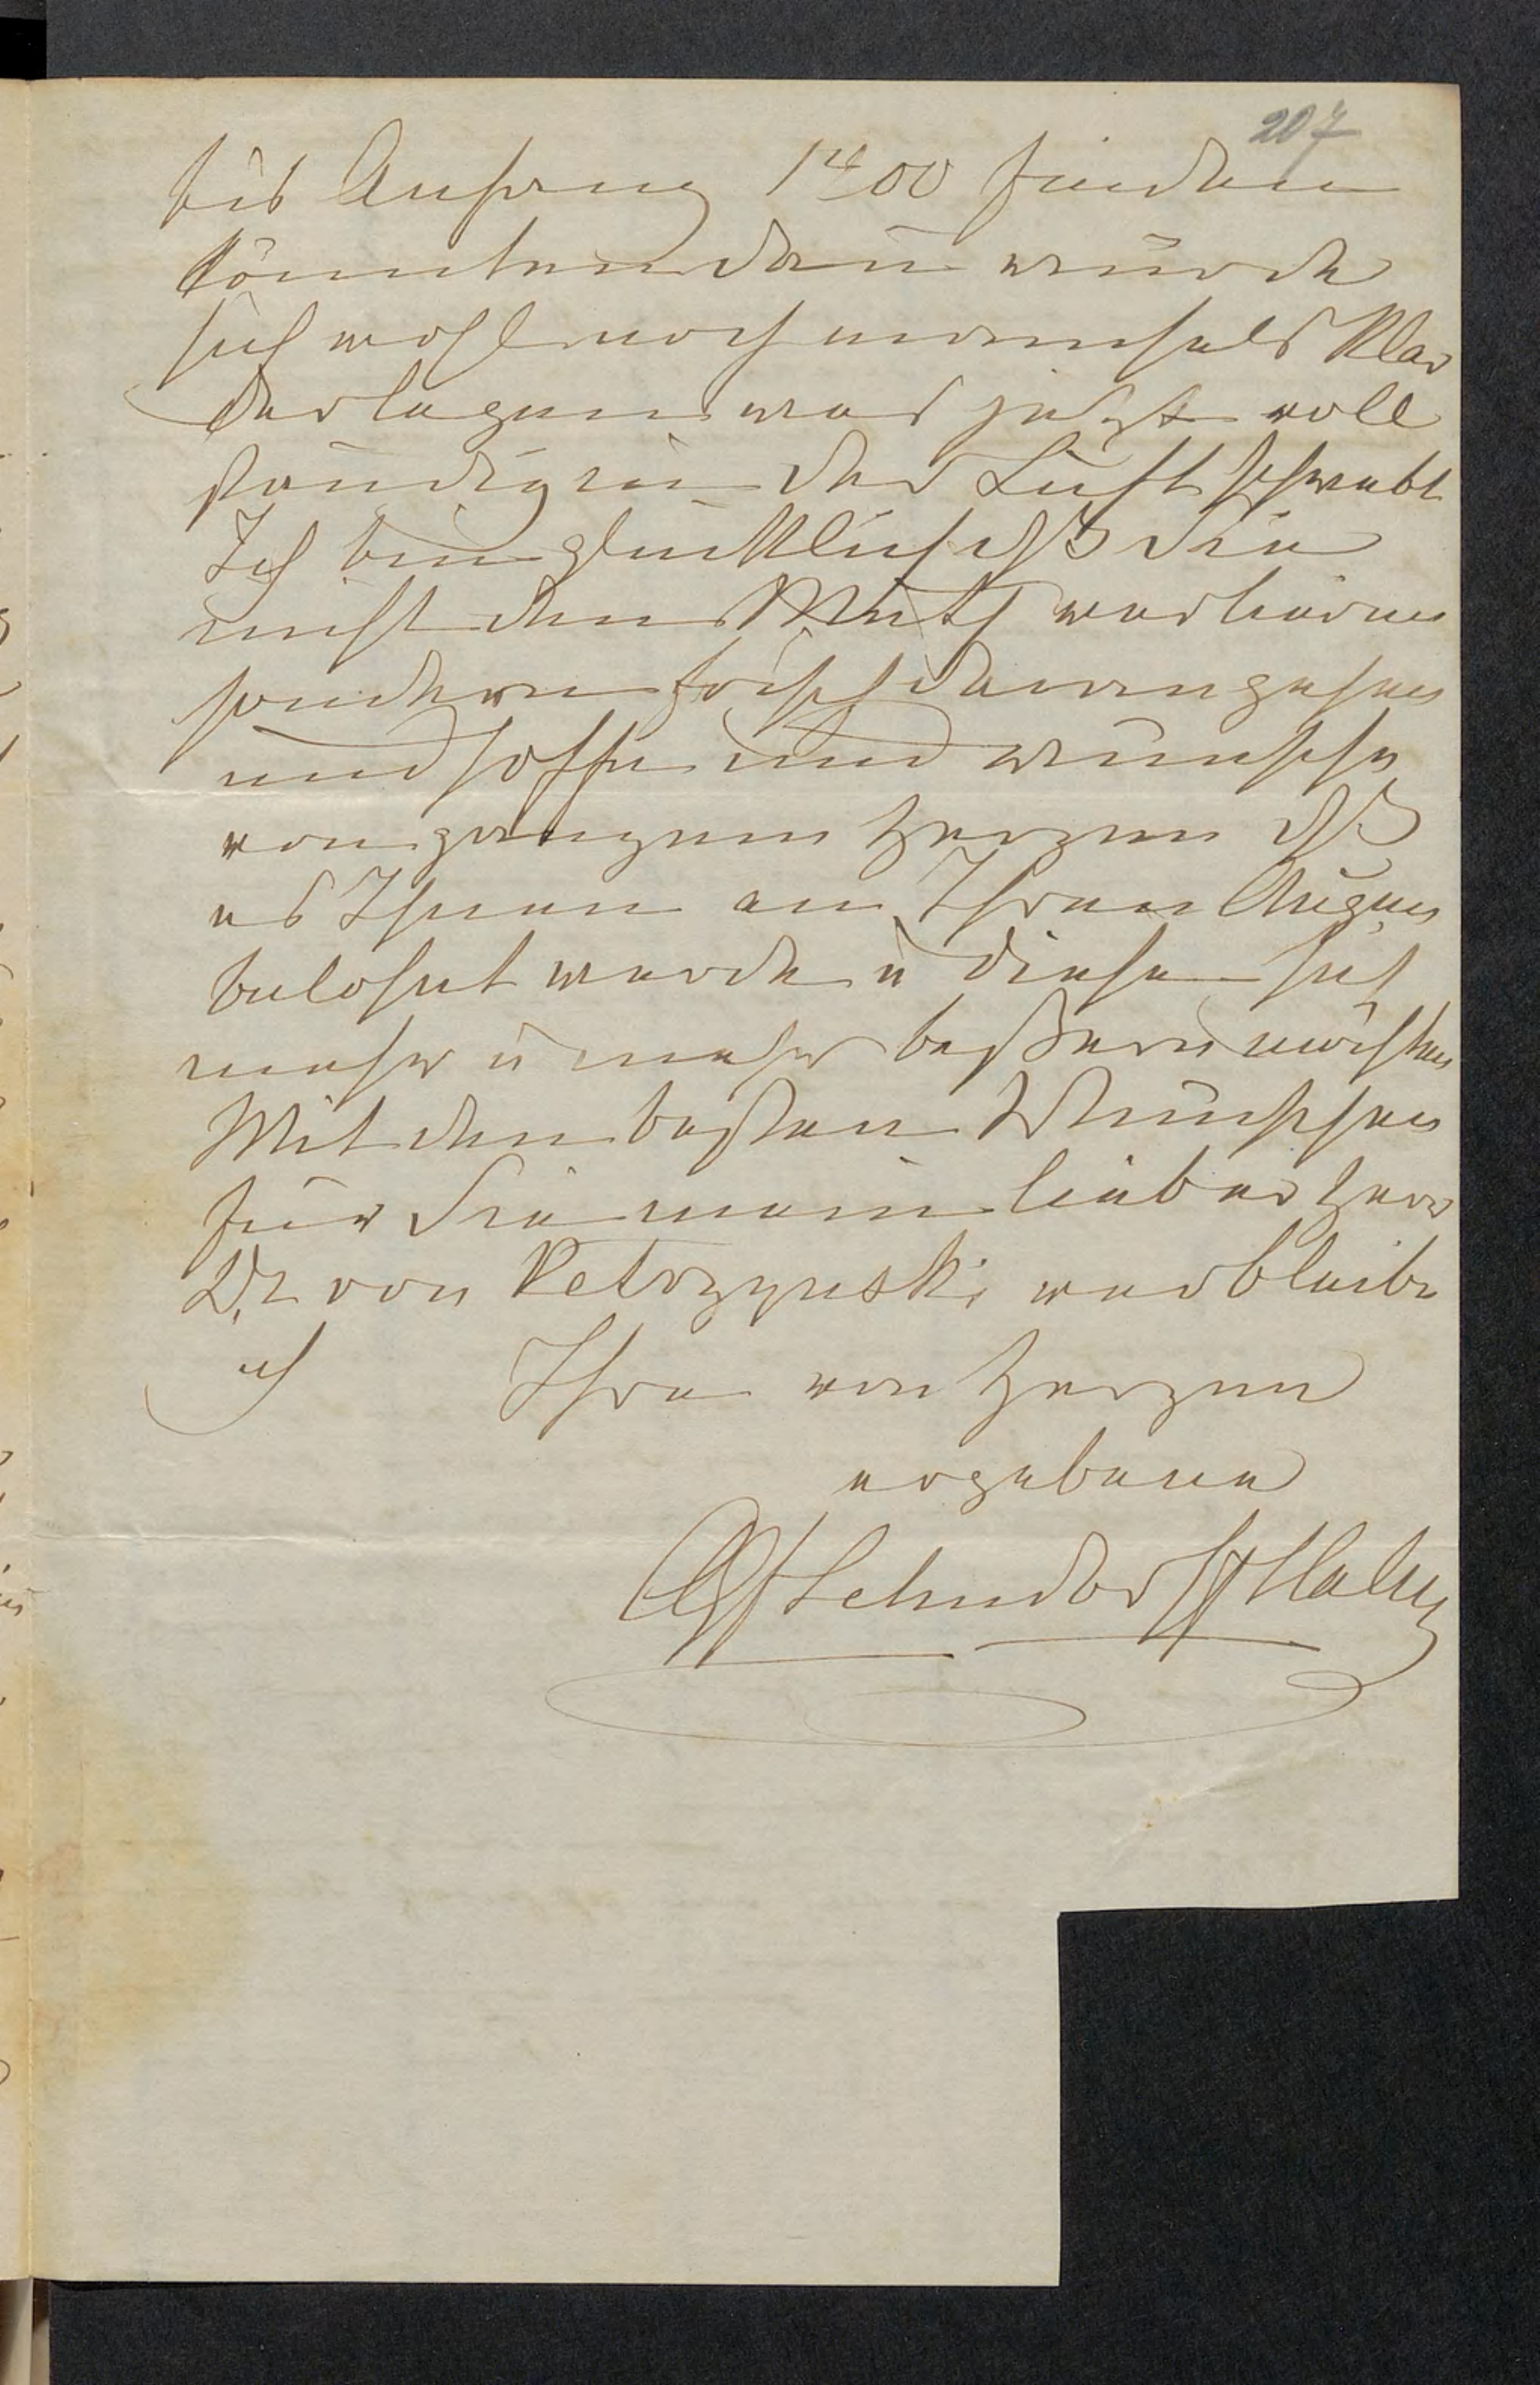 207
bis Anfang 1400 finden
könnten dan̄ würde
sich wohl noch manches Klar
darlegen was jetzt voll
ständig in der Luft schwebt
Ich bin glücklich dß Sie
nicht den Muth verlieren
sondern frisch daran gehen
und hoffe und wünsche
von ganzem Herzen dß
es Ihnen an Ihren Augen
belohnt werde u diese sich
mehr u mehr beßern möchten
Mit den besten Wünschen
für Sie mein lieber Herr
Dr von Ketrzynski verbleibe
ich Ihre von Herzen
ergebene
Lehndorff Hahn